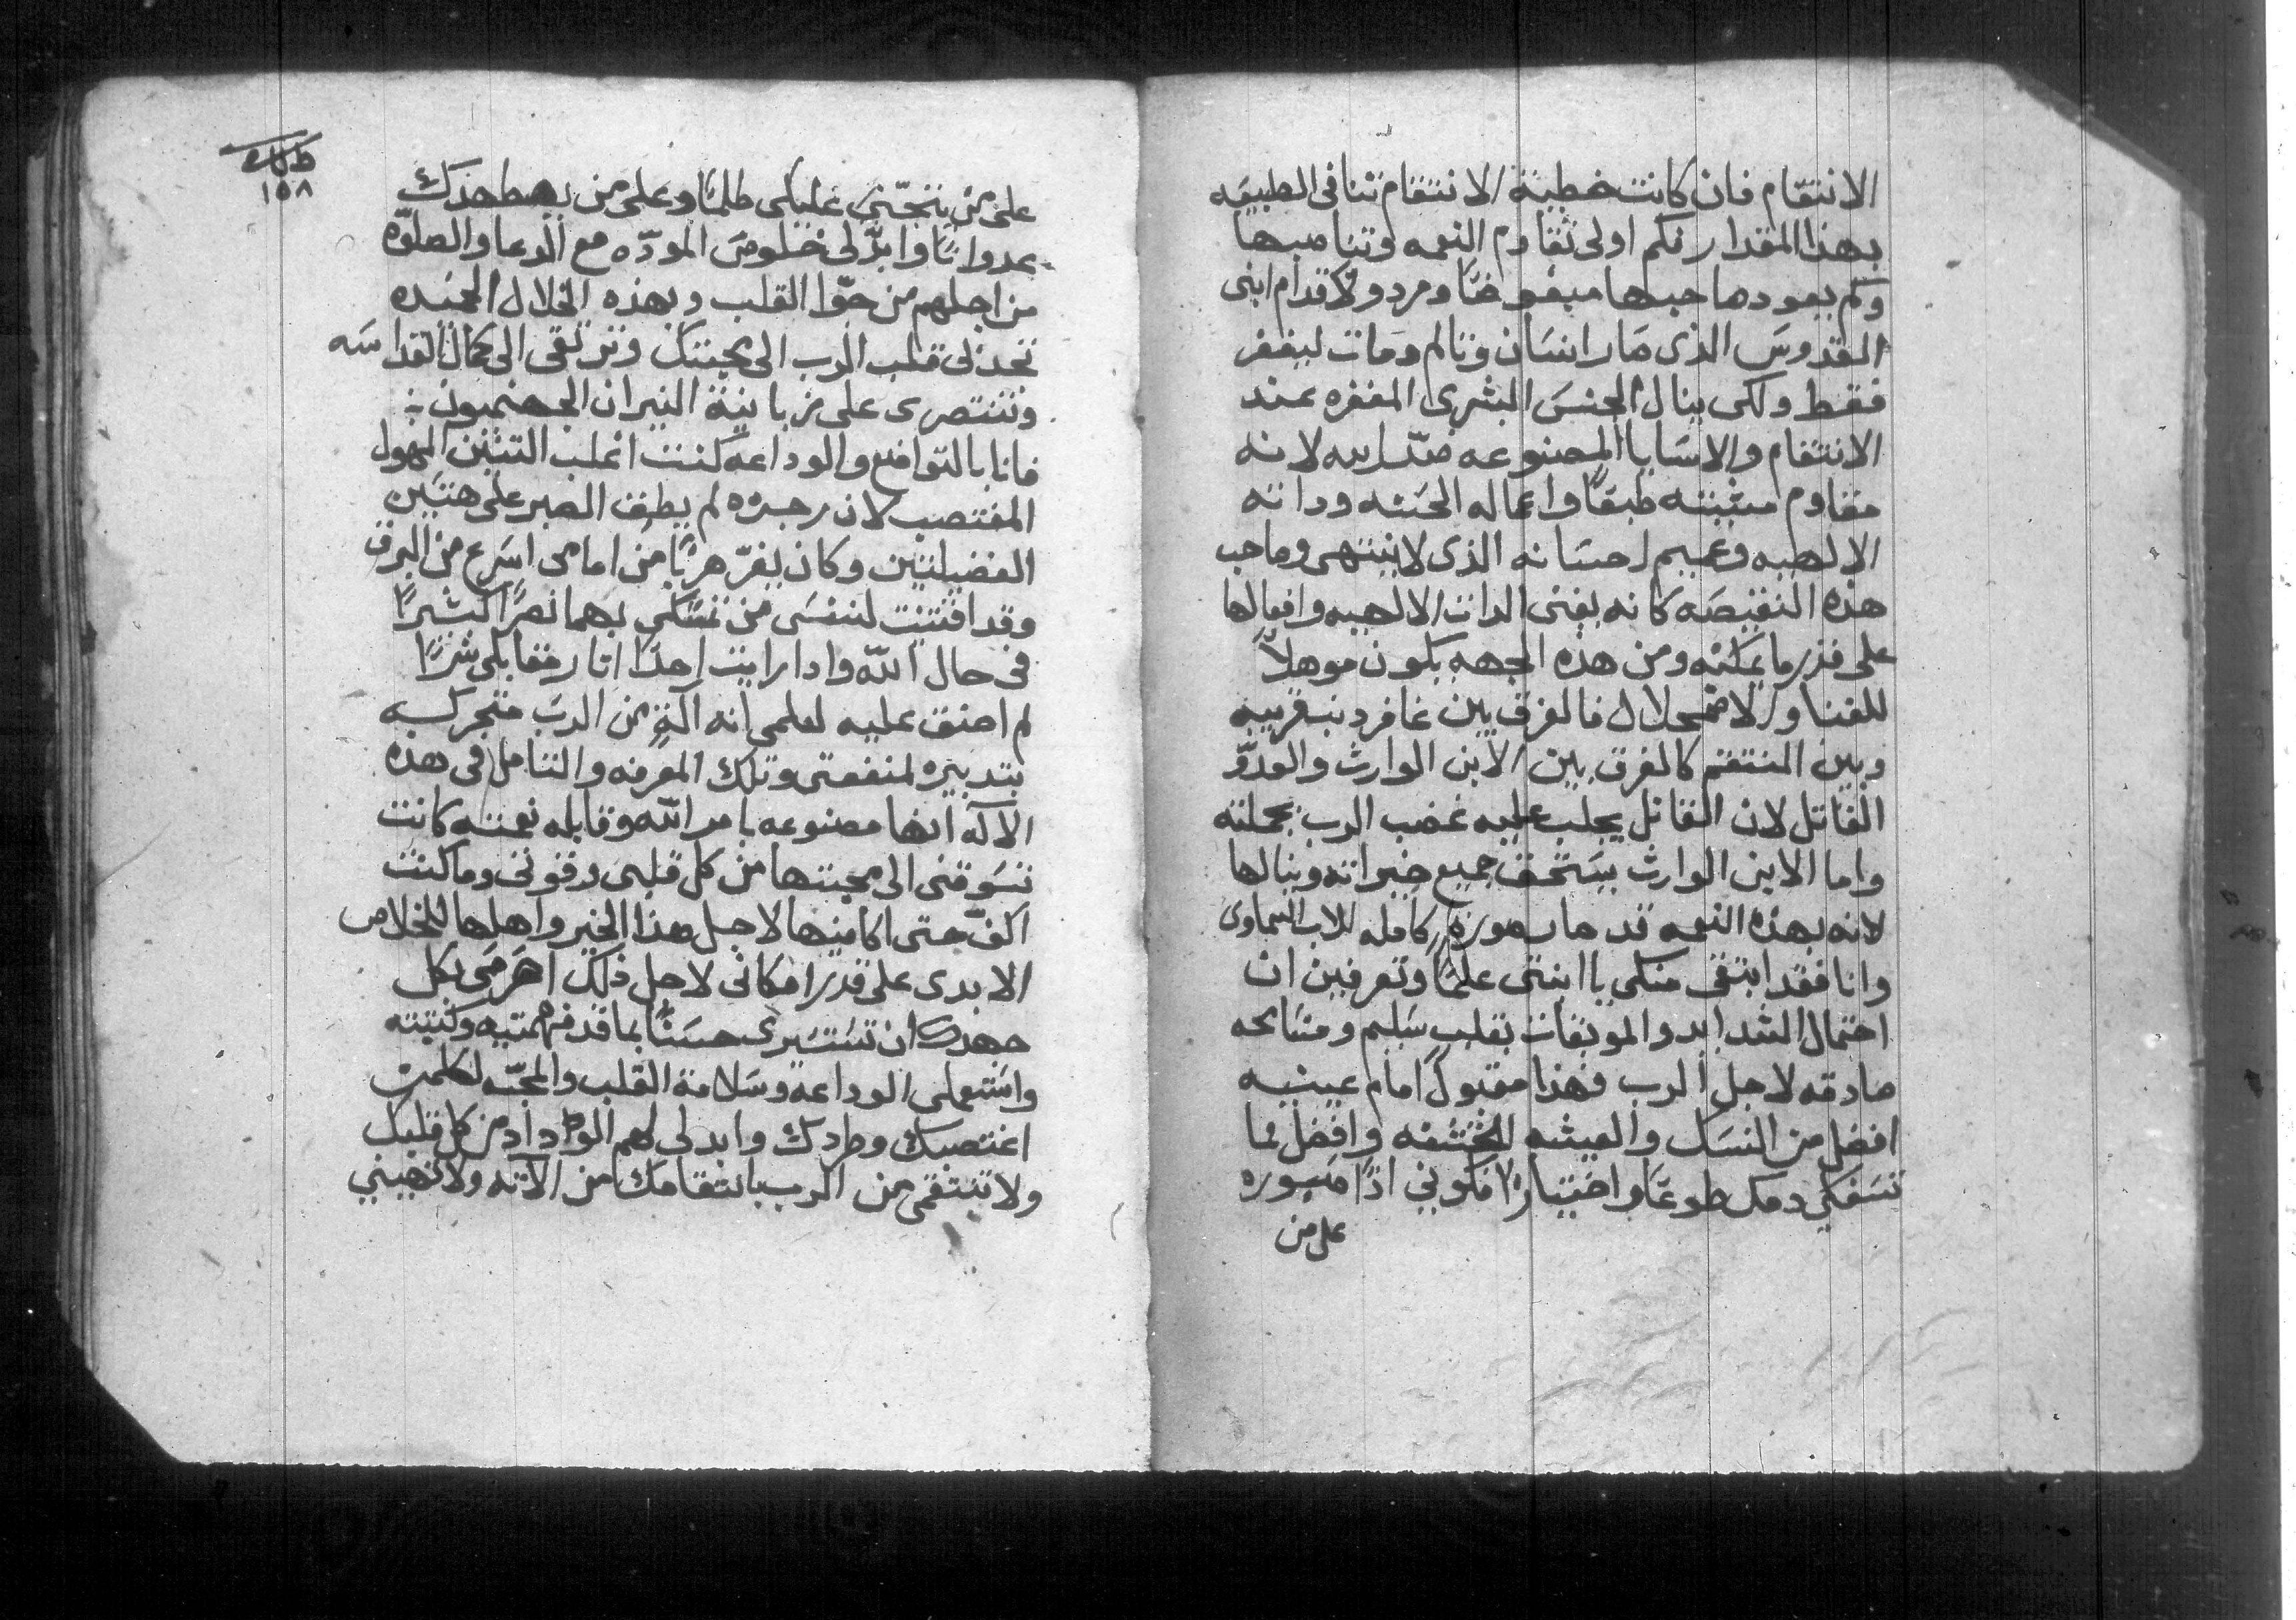 الانتقام فان كانت خطية الانتقام تنافى الطبيعه
بهذا المقدار فكم اولى تقاوم النعمه وتناصبها
وكم يعود صاحبها مبغوضًا ومردولًا قدام ابنى
القدوس الذى صار انسان وتالم ومات ليغفر
فقط ولكى ينال الجنس البشرى المغفره عند
الانتقام والاسايا المصنوعه ضدّ ابيه لانه
مقاوم مشيته طبعًا واعماله الحسنه وذاته
الالهيه وعميم احسانه الذى لا ينتهى وصاحب
هذه النقيصه كانه يفنى الذات الالهيه وافعالها
على قدر ما يمكنه ومن هذه الجهه يكون موهلًا
للفنا والاضمحلال فالفرق بين غافر ذنب قريبه
وبين المنتقم كالفرق بين الابن الوارث والعدوّ
القاتل لان القاتل يجلب عليه غضب الرب بجملته
واما الابن الوارث يستحق جميع خيراته وينالها
لانه بهذه النعمه قد صار صورةً كامله للاب السماوى
وانا فقد ابتغى منكى يا ابنتى علمًا وتعرفين ان
احتمال الشدايد والموبقات بقلب سليم ومسامحه
صادقه لاجل الرب فهذا مقبول امام عينيه
افضل من النسك والعيشه الخشنه وافضل مما
تسفكى دمك طوعًا واختيارًا فكونى اذًا صبوره
على من
١٥٨
على من يتجنّى عليكى ظلمًا وعلى من يضطهدك
عدوانًا وابدّلى خلوص المودّه مع الدعا والصلوّه
من اجلهم من جوّا القلب وبهذه الخلال الحميده
تجذبى قلب الرب الى محبتك وترتقى الى كمال القداسه
وتنتصرى على زبانية النيران الجهنميون
فانا بالتواضع والوداعه كنت اغلب التنين المهول
المغتصب لان رجزه لم يطق الصبر على هتين
الفضيلتين وكان يفرّ هربًا من امامى اسرع من البرق
وقد اقتنيت لنفسى من تمسكى بهما نصرًا كثيرًا
فى حال اللّه واذا رايت احدًا اثار مقابلى شرًا
لم احنق عليه لعلمى انه آلةٍ من الرب متحركه
بتدبيره لمنفعتى وتلك المعرفه والتامل فى هذه
الآله انها مصنوعه بامر اللّه وقابله نعمته كانت
تسوقنى الى محبتها من كل قلبى وقوتى وما كنت
اكفّ حتى اكامنها لاجل هذا الخير واهلها للخلاص
الابدى على قدر امكانى لاجل ذلك احرصى بكل
جهدك ان تستسيرى حسنًا بما قد فهمتيه وكتبته
واستعملى الوداعة وسلامة القلب والمحبّه لكلمن
اغتصبك وطردك وابدلى لهم الوداد من كل قلبك
ولا تنتقمى من الرب بانتقامك من الآته ولا تهينى